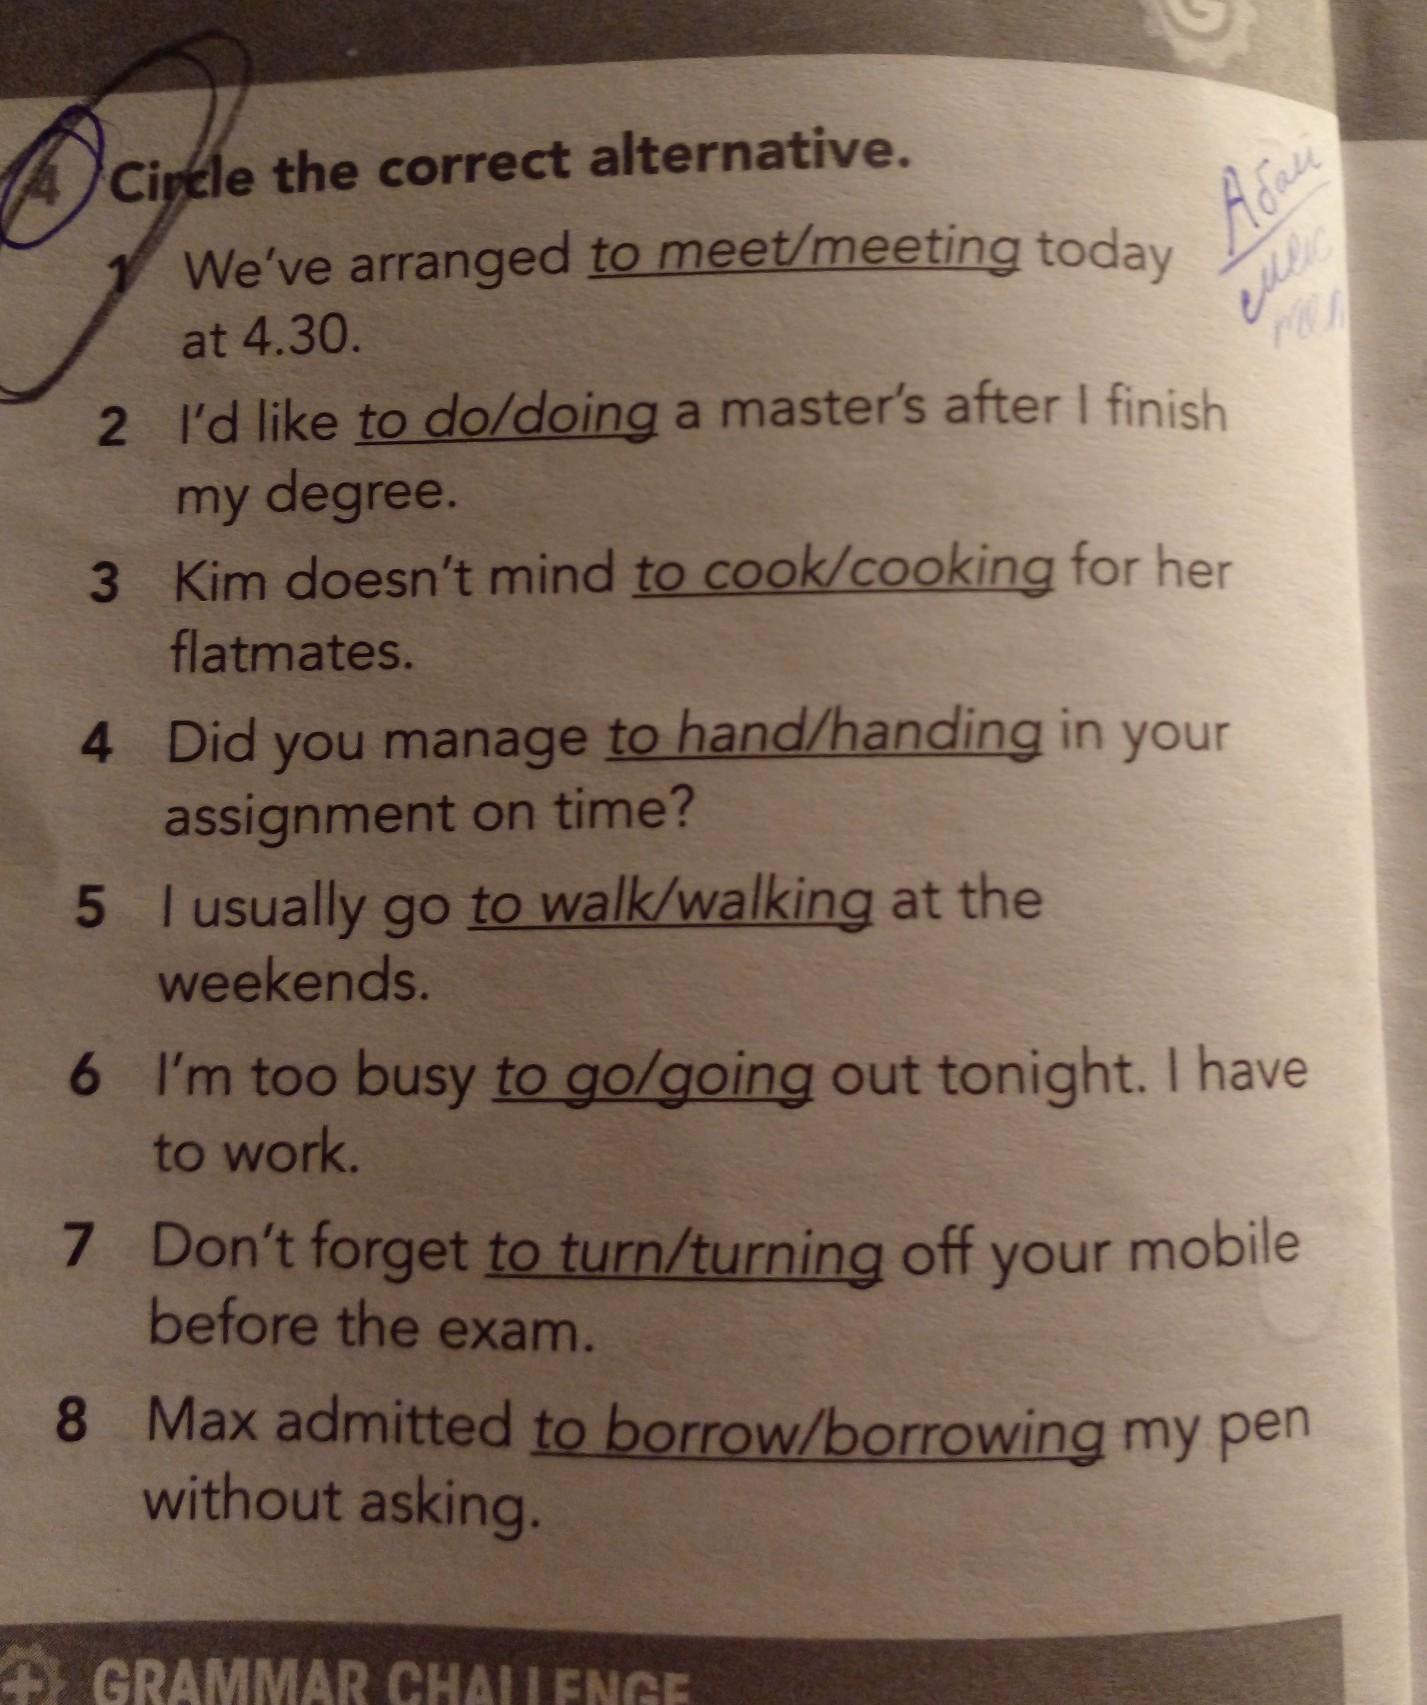 4 Circle the correct alternative.
1 We've arranged to meet/meeting today
at 4.30.
2 I'd like to do/doing a master's after I finish
my degree.
3 Kim doesn't mind to cook/cooking for her
flatmates.
4 Did you manage to hand/handing in your
assignment on time?
5 I usually go to walk/walking at the
weekends.
6 I'm too busy to go/going out tonight. I have
to work.
7 Don't forget to turn/turning off your mobile
before the exam.
8 Max admitted to borrow/borrowing my pen
without asking.
Абай
GRAMMAR CHALLENGE